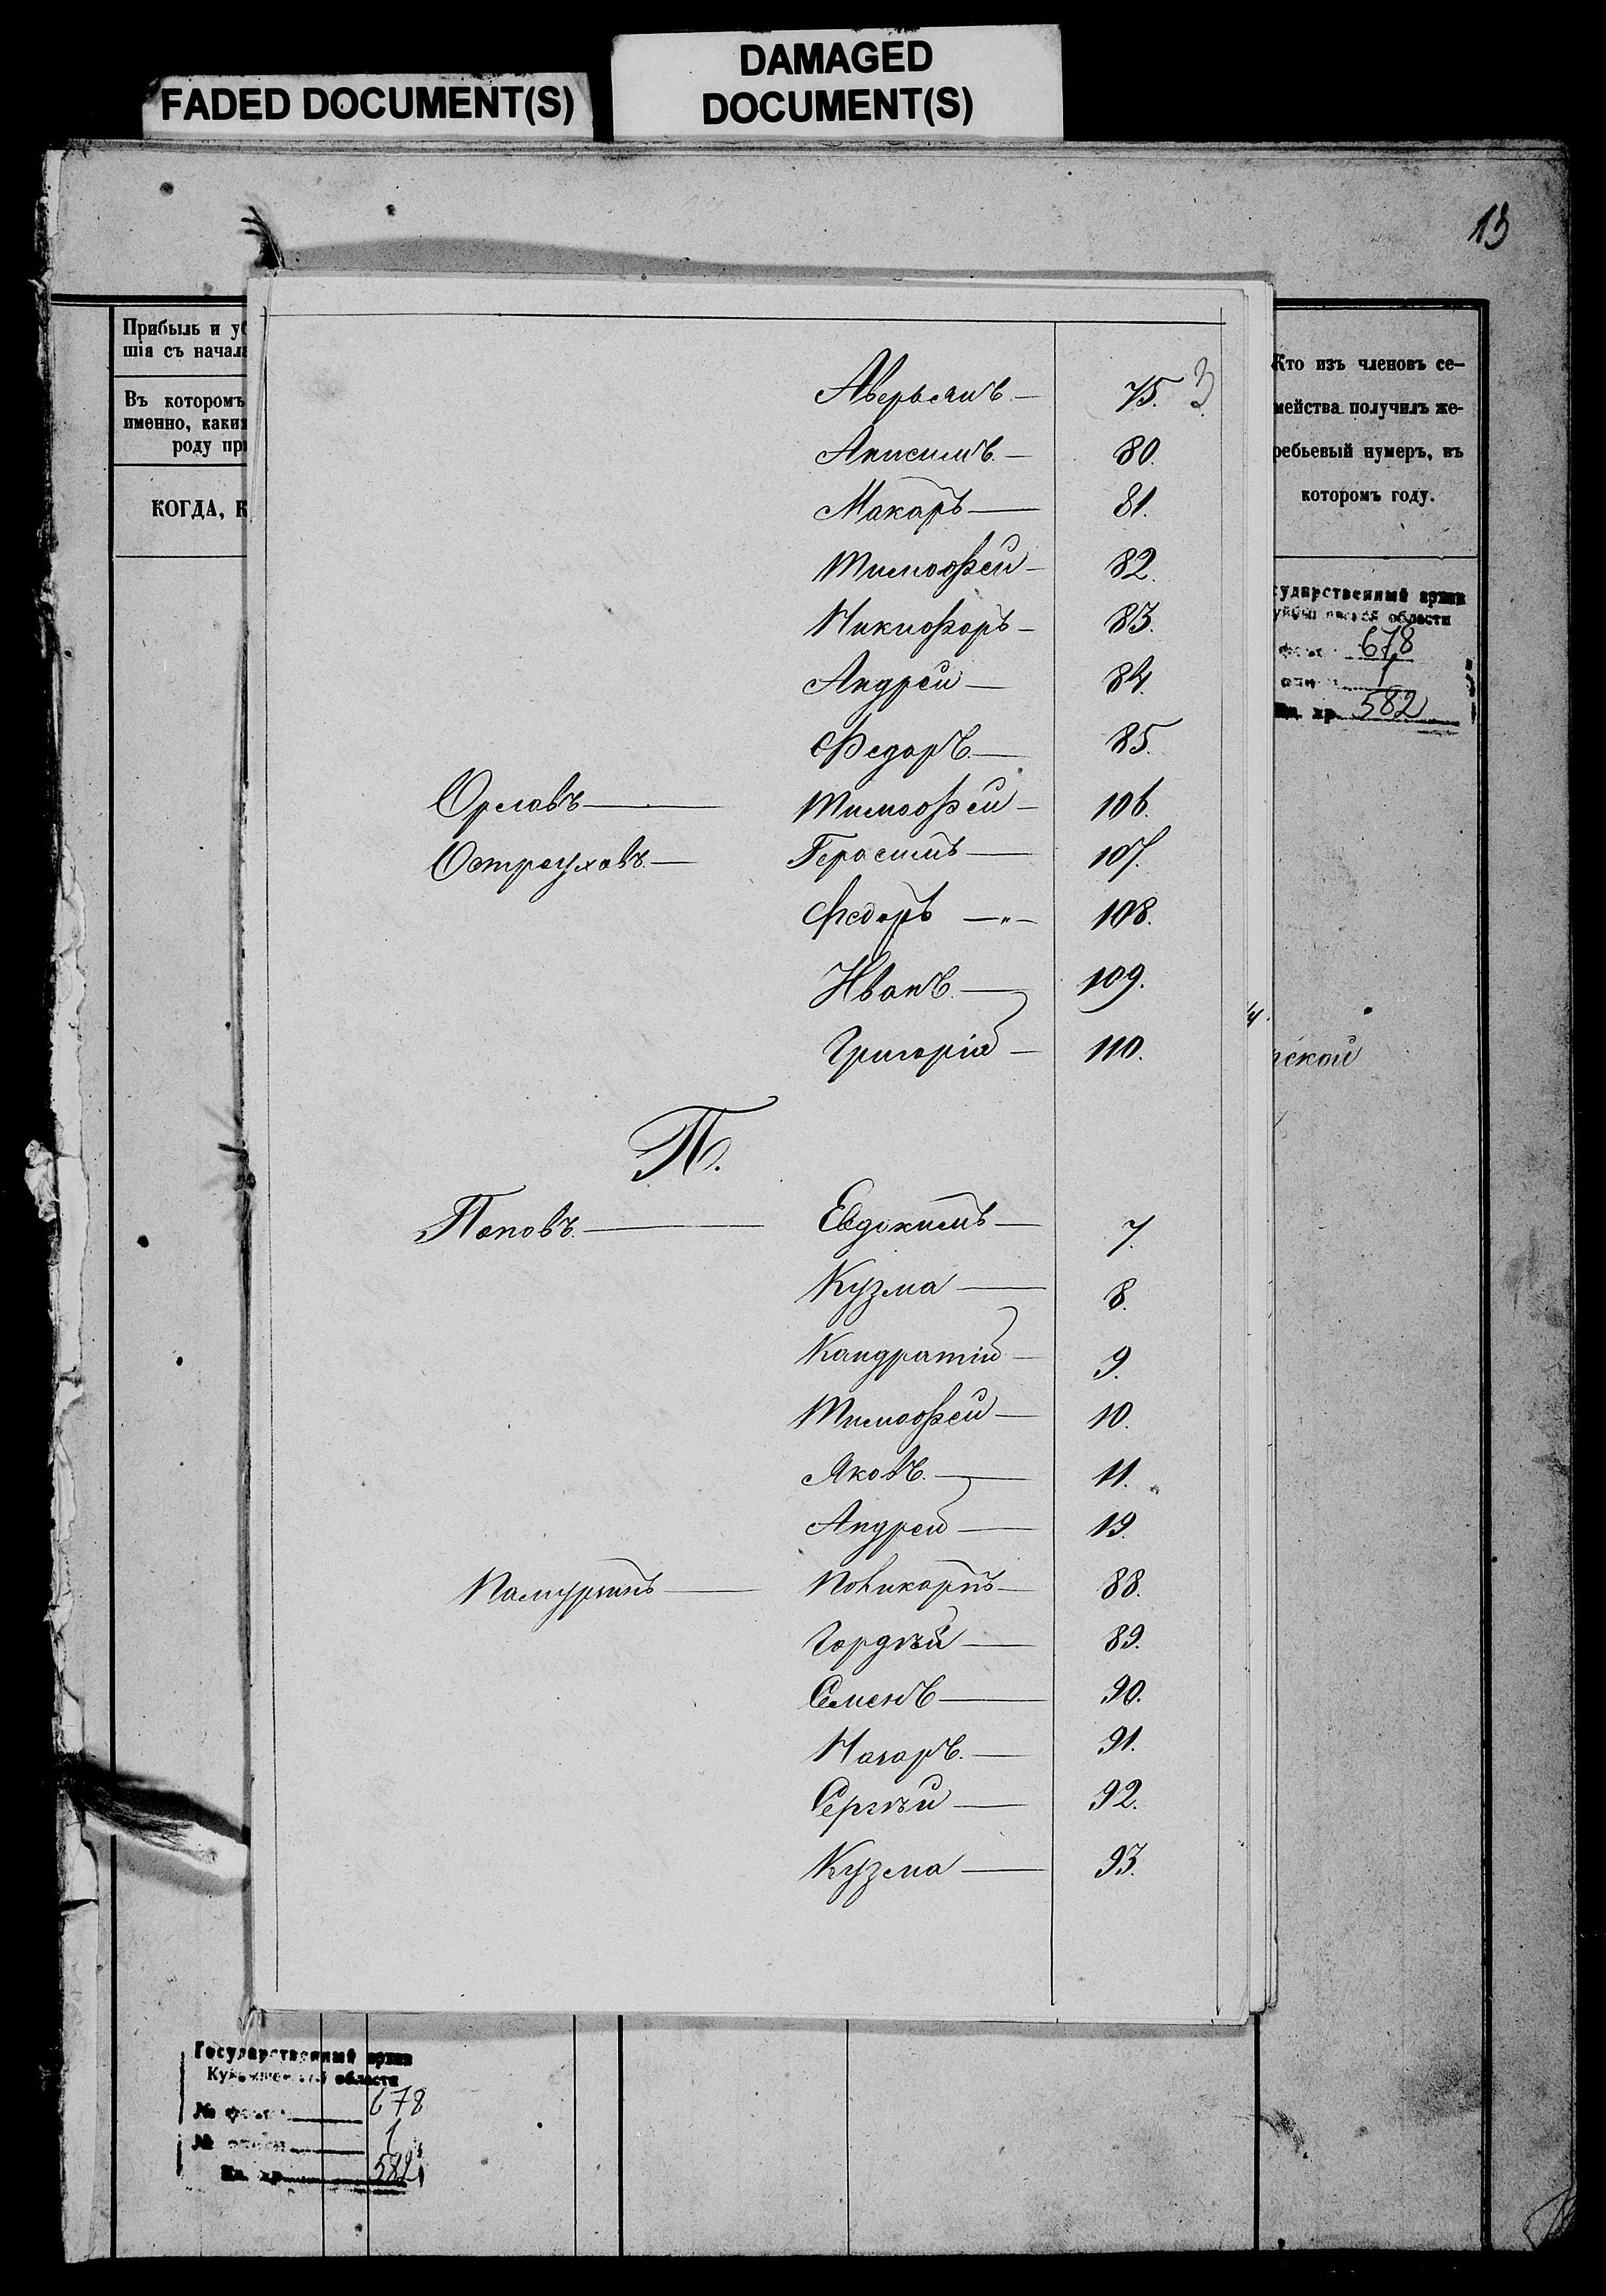 FADED DOCUMENT(S)
DAMAGED
DOCUMENT(S)
13
Прибыль и уб
шія съ начала
Въ которомъ
именно, каки
роду при
КОГДА, К
Кто изъ членовъ се-
мейства получилъ же-
ребьевый нумеръ, въ
котором году.
сударственный архив
области
678
1
Ед. хр. 582
ской
3
Аверьянъ — 75.
Анисимъ — 80.
Макаръ — 81.
Тимофей — 82.
Никифоръ — 83.
Андрей — 84.
Федоръ — 85.
Орловъ — Тимофей — 106.
Остроуховъ — Герасимъ — 107.
Федоръ —"— 108.
Иванъ — 109.
Григорій — 110.
П.
Поповъ — Евдокимъ — 7.
Кузма — 8.
Кандратій — 9.
Тимофей — 10.
Яковъ — 11.
Андрей — 19.
Поликарпъ — 88.
Гордѣй — 89.
Семенъ — 90.
Назаръ — 91.
Сергѣй — 92.
Кузма — 93.
Государственный архив
области
№ 678
№ описи 1
Ед. хр. 582